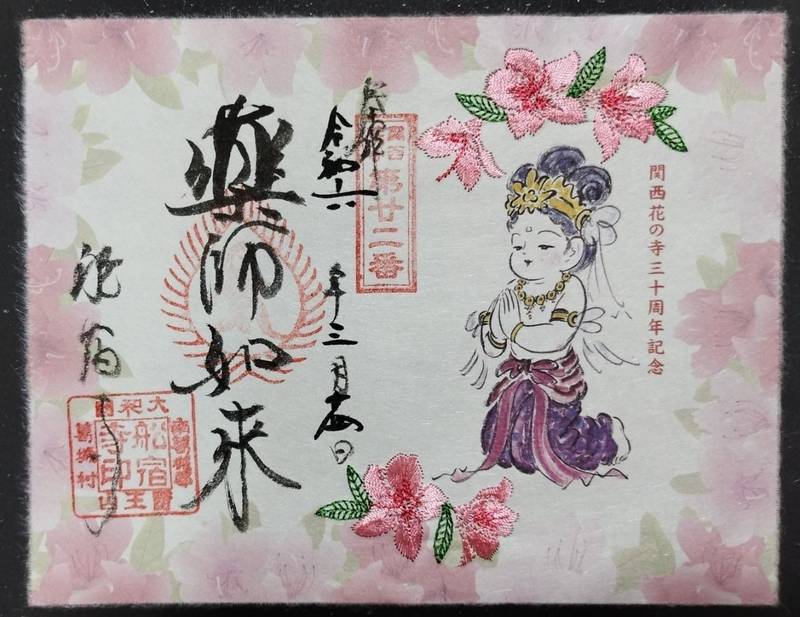 関西花の寺三十周年記念
関西
第廿二番
令和六
年三月
日
薬師如来
船宿寺
大和國
葛城村
醫王山
船宿
寺印